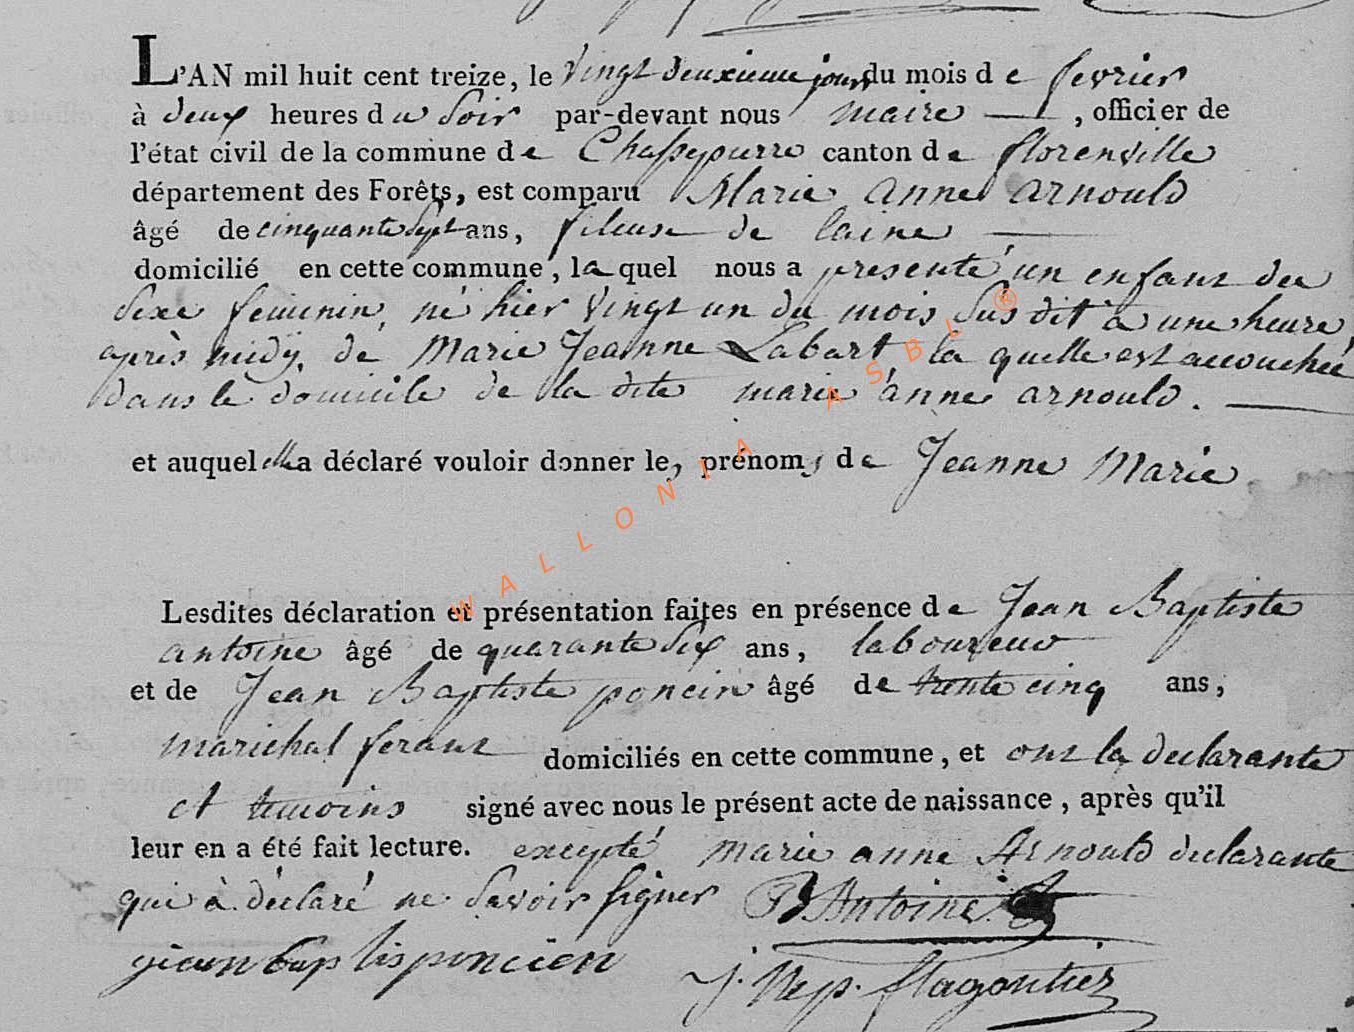 L'AN mil huit cent treize, le vingt deuxieme jour du mois de fevrier
à deux heures du Soir par-devant nous maire , officier de
l'état civil de la commune de Chassepierre canton de florenville
département des Forêts, est comparu Marie anne arnould
âgé de cinquante Sept ans, fileuse de laine
domicilié en cette commune, la quel nous a presenté un enfant du
Sexe feminin, né hier vingt un du mois Sus dit a une heure
après midy, de Marie Jeanne Labart la quelle est accouchée
dans le domicile de la dite marie anne arnould.
et auquel elle a déclaré vouloir donner les prénoms de Jeanne Marie
Lesdites déclaration et présentation faites en présence de Jean Baptiste
antoine âgé de quarante Six ans, laboureur
et de Jean Baptiste poncin âgé de trente cinq ans,
marichal ferant domiciliés en cette commune, et ont la declarante
et temoins signé avec nous le présent acte de naissance, après qu'il
leur en a été fait lecture. excepté marie anne Arnould declarante
qui à déclaré ne Savoir signer JB Antoine
jean bap tis poncien
J. Nep. flagontier
WALLONIA ASBL ®